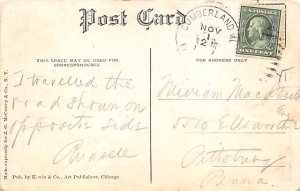 Post Card
CUMBERLAND, M
NOV
1
12 M
U.S. POSTAGE
ONE CENT
THIS SPACE MAY BE USED FOR
CORRESPONDENCE
FOR ADDRESS ONLY
I travelled the
road shown on
opposite side
Russell
Miriam
5510 Ellsworth
Pittsburg
Penna.
Made expressly for J. G. McCrorey & Co., N. Y.
Pub. by K-win & Co., Art Publishers, Chicago